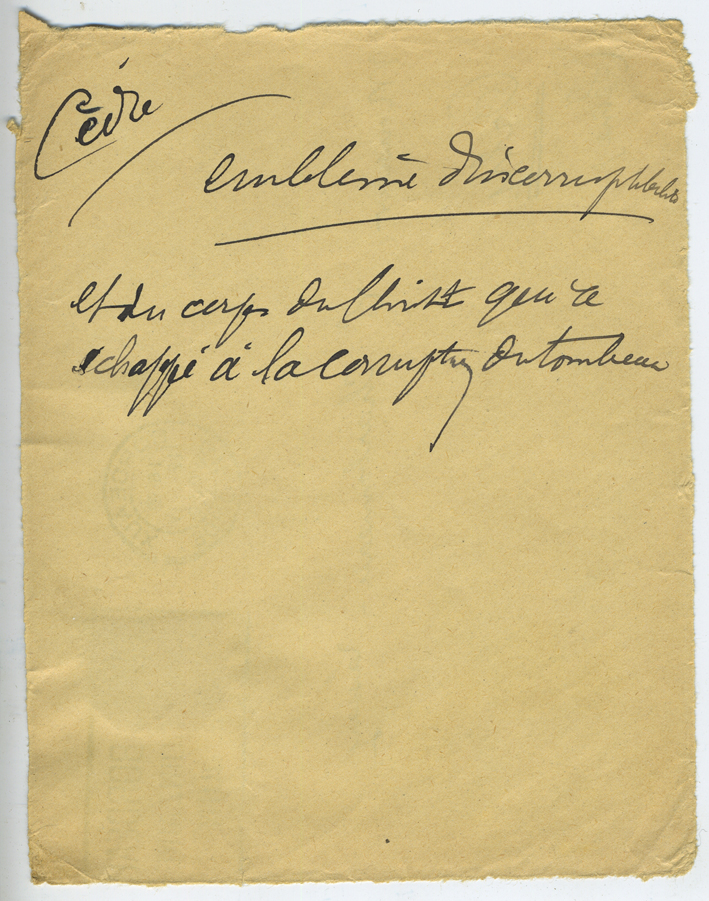 Cèdre
emblème d'incorruptibilité
et du corps du Christ qui a
échappé à la corruption du tombeau